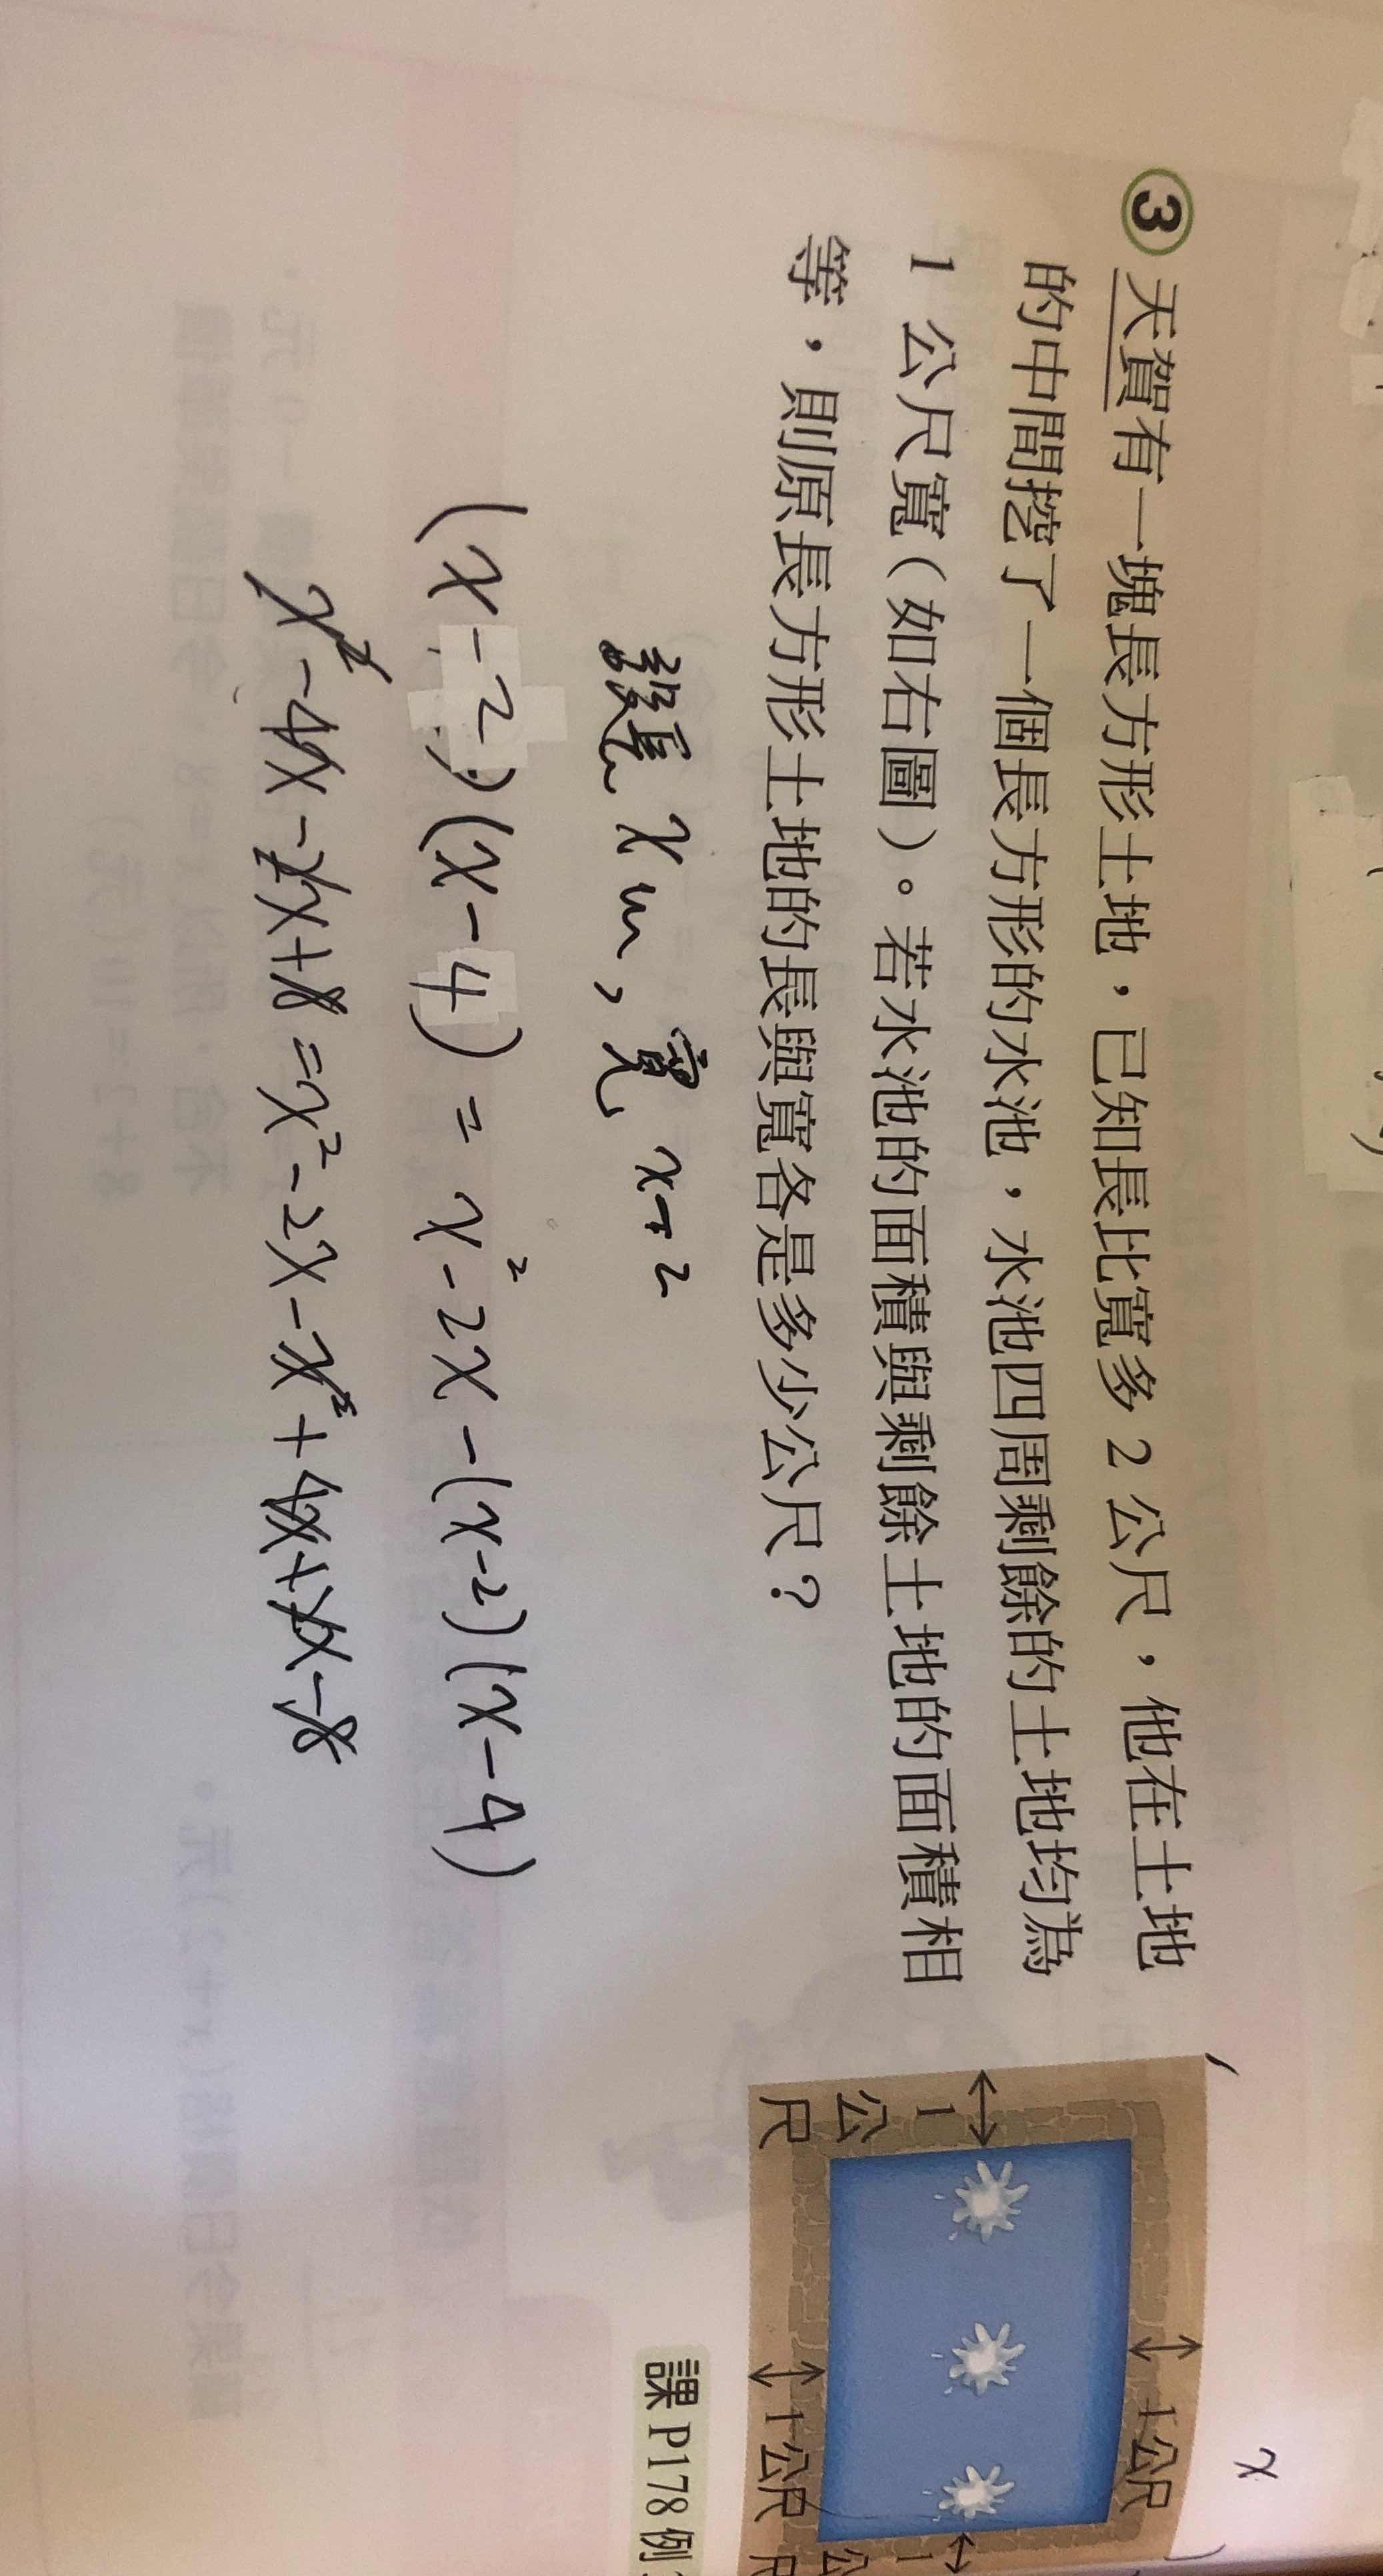 ③ 天賀有一塊長方形土地，已知長比寬多 2 公尺，他在土地
的中間挖了一個長方形的水池，水池四周剩餘的土地均為
1 公尺寬（如右圖）。若水池的面積與剩餘土地的面積相
等，則原長方形土地的長與寬各是多少公尺？
x
1公尺
1
公
尺
1公尺
1
公
尺
課 P178 例
設長 x m，寬 x-2
(x-2)(x-4) = x²-2x-(x-2)(x-4)
x²-4x-2x+8=x²-2x-x²+4x+2x-8